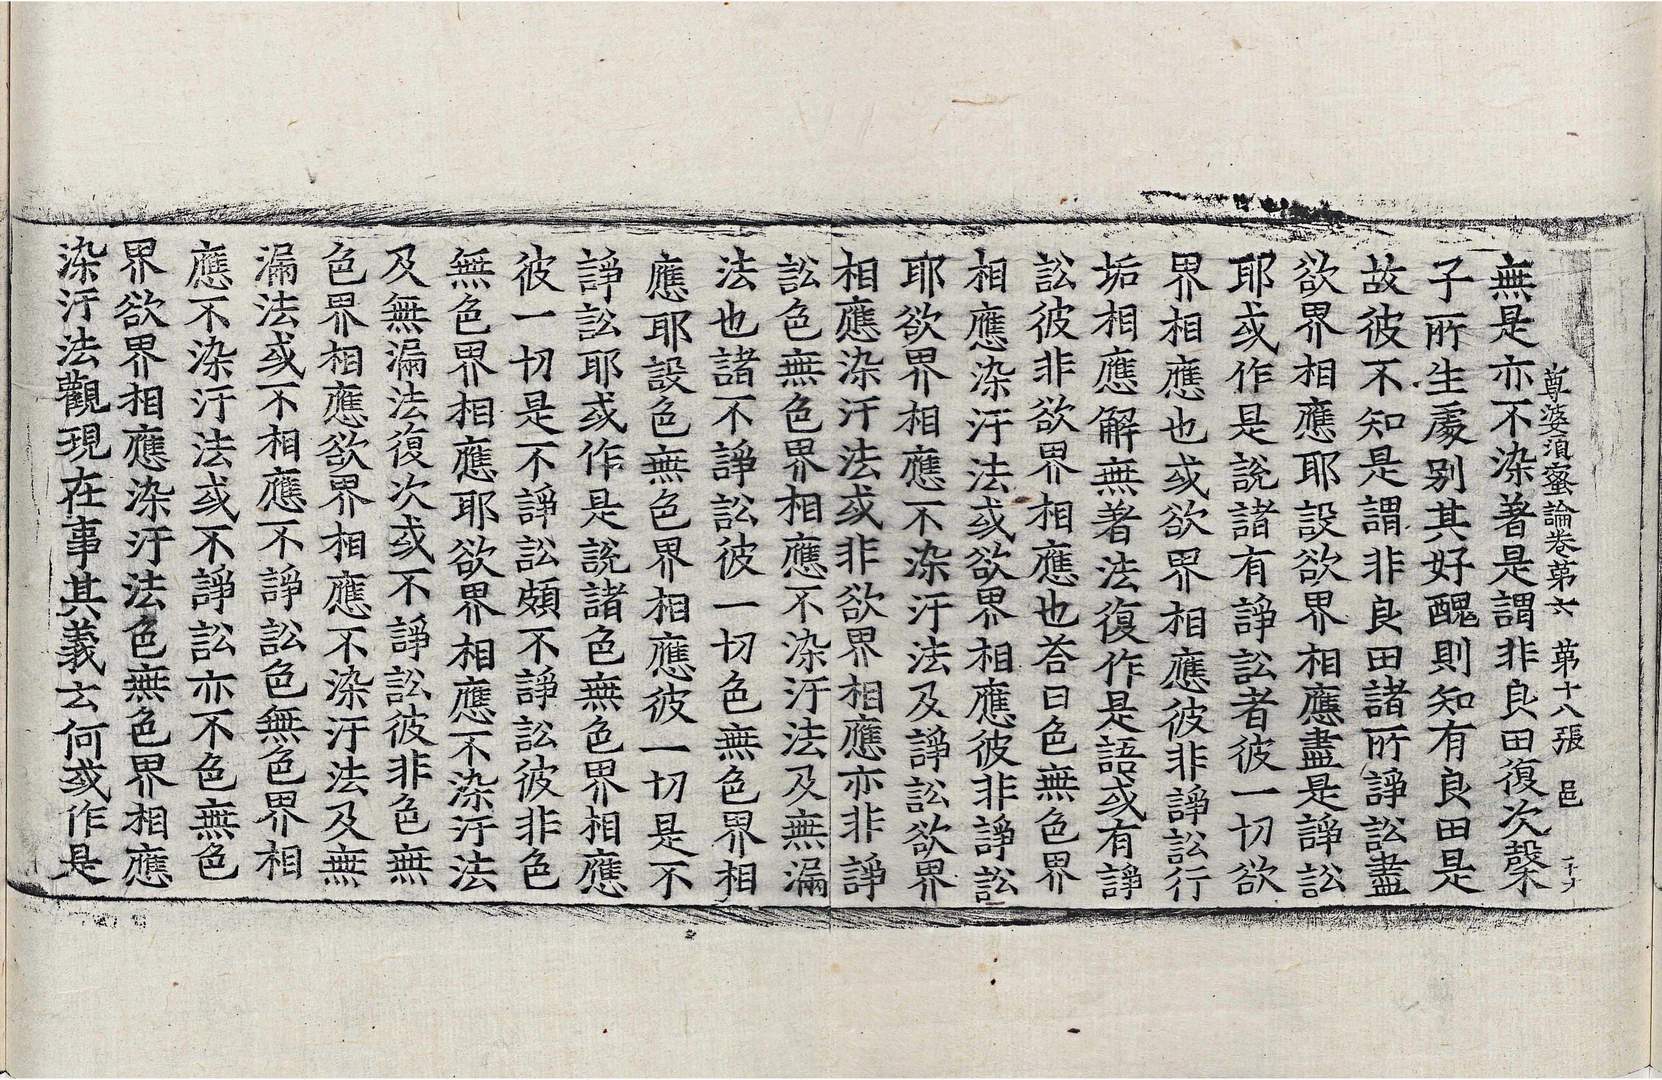 尊婆須蜜論卷第六　第十八張　邑
無是亦不染著是謂非良田復次槃
子所生處別其好醜則知有良田是
故彼不知是謂非良田諸所諍訟盡
欲界相應耶設欲界相應盡是諍訟
耶或作是說諸有諍訟者彼一切欲
界相應也或欲界相應彼非諍訟行
垢相應解無著法復作是語或有諍
訟彼非欲界相應也荅曰色無色界
相應染汙法或欲界相應彼非諍訟
耶欲界相應不染汙法及諍訟欲界
相應染汙法或非欲界相應亦非諍
訟色無色界相應不染汙法及無漏
法也諸不諍訟彼一切色無色界相
應耶設色無色界相應彼一切是不
諍訟耶或作是說諸色無色界相應
彼一切是不諍訟頗不諍訟彼非色
無色界相應耶欲界相應不染汙法
及無漏法復次或不諍訟彼非色無
色界相應欲界相應不染汙法及無
漏法或不相應不諍訟色無色界相
應不染汙法或不諍訟亦不色無色
界欲界相應染汙法色無色界相應
染汙法觀現在事其義云何或作是